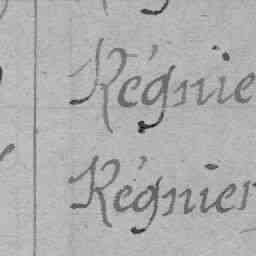 Régnie
Régnier